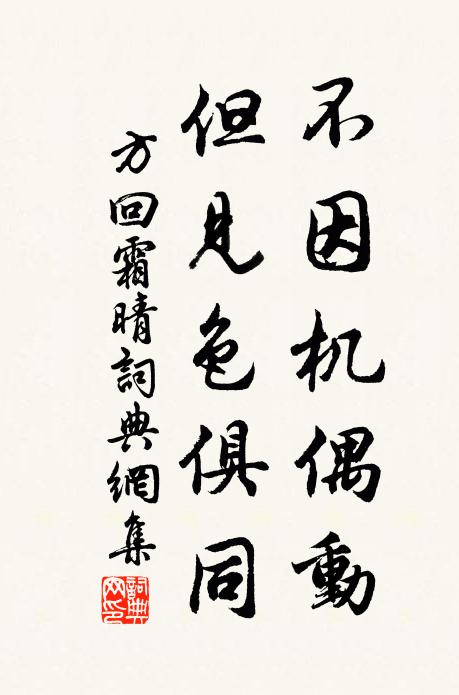 不因机偶動
但見色俱同
方回霜晴詞典網集
詞典網印